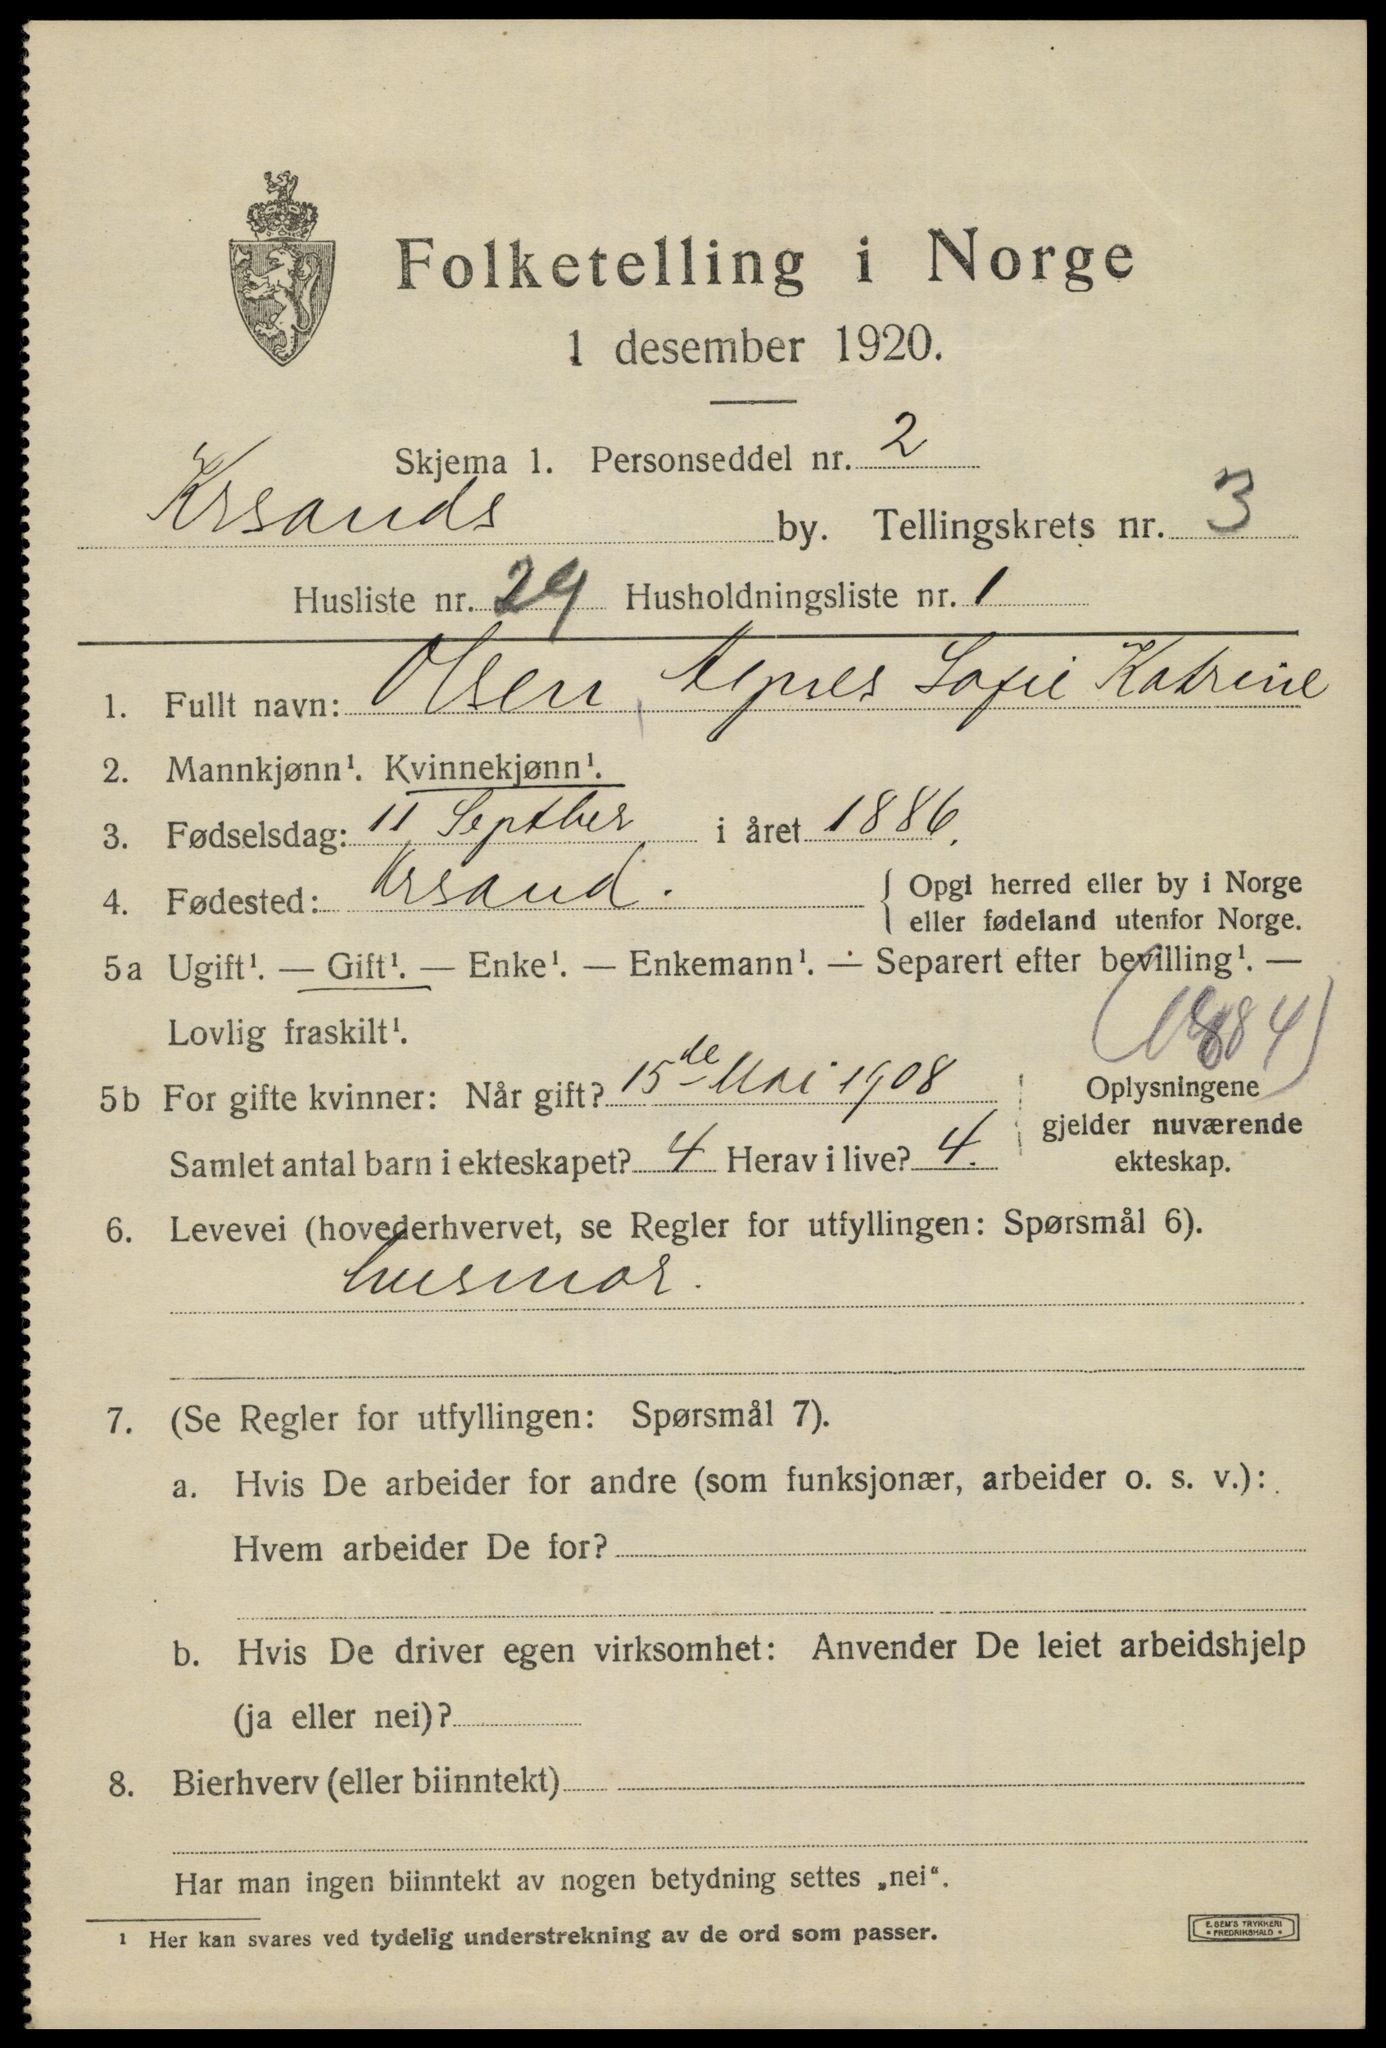 Folketelling i Norge
1 desember 1920.
Skjema 1. Personseddel nr. 2
Krsands by. Tellingskrets nr. 3
Husliste nr. 29 Husholdningsliste nr. 1
1. Fullt navn: Olsen, Agnes Sofie Katrine
2. Mannkjønn¹. Kvinnekjønn¹.
3. Fødselsdag: 11 Septber i året 1886.
4. Fødested: Krsand. { Opgi herred eller by i Norge
eller fødeland utenfor Norge.
5a Ugift¹. — Gift¹. — Enke¹. — Enkemann¹. — Separert efter bevilling¹. —
Lovlig fraskilt¹.
(1884)
5b For gifte kvinner: Når gift? 15de Mai 1908 Oplysningene
gjelder nuværende
Samlet antal barn i ekteskapet? 4 Herav i live? 4. ekteskap.
6. Levevei (hovederhvervet, se Regler for utfyllingen: Spørsmål 6).
husmor.
7. (Se Regler for utfyllingen: Spørsmål 7).
a. Hvis De arbeider for andre (som funksjonær, arbeider o. s. v.):
Hvem arbeider De for?
b. Hvis De driver egen virksomhet: Anvender De leiet arbeidshjelp
(ja eller nei)?
8. Bierhverv (eller biinntekt)
Har man ingen biinntekt av nogen betydning settes „nei“.
¹ Her kan svares ved tydelig understrekning av de ord som passer.
E. SEM'S TRYKKERI
• FREDRIKSHALD •